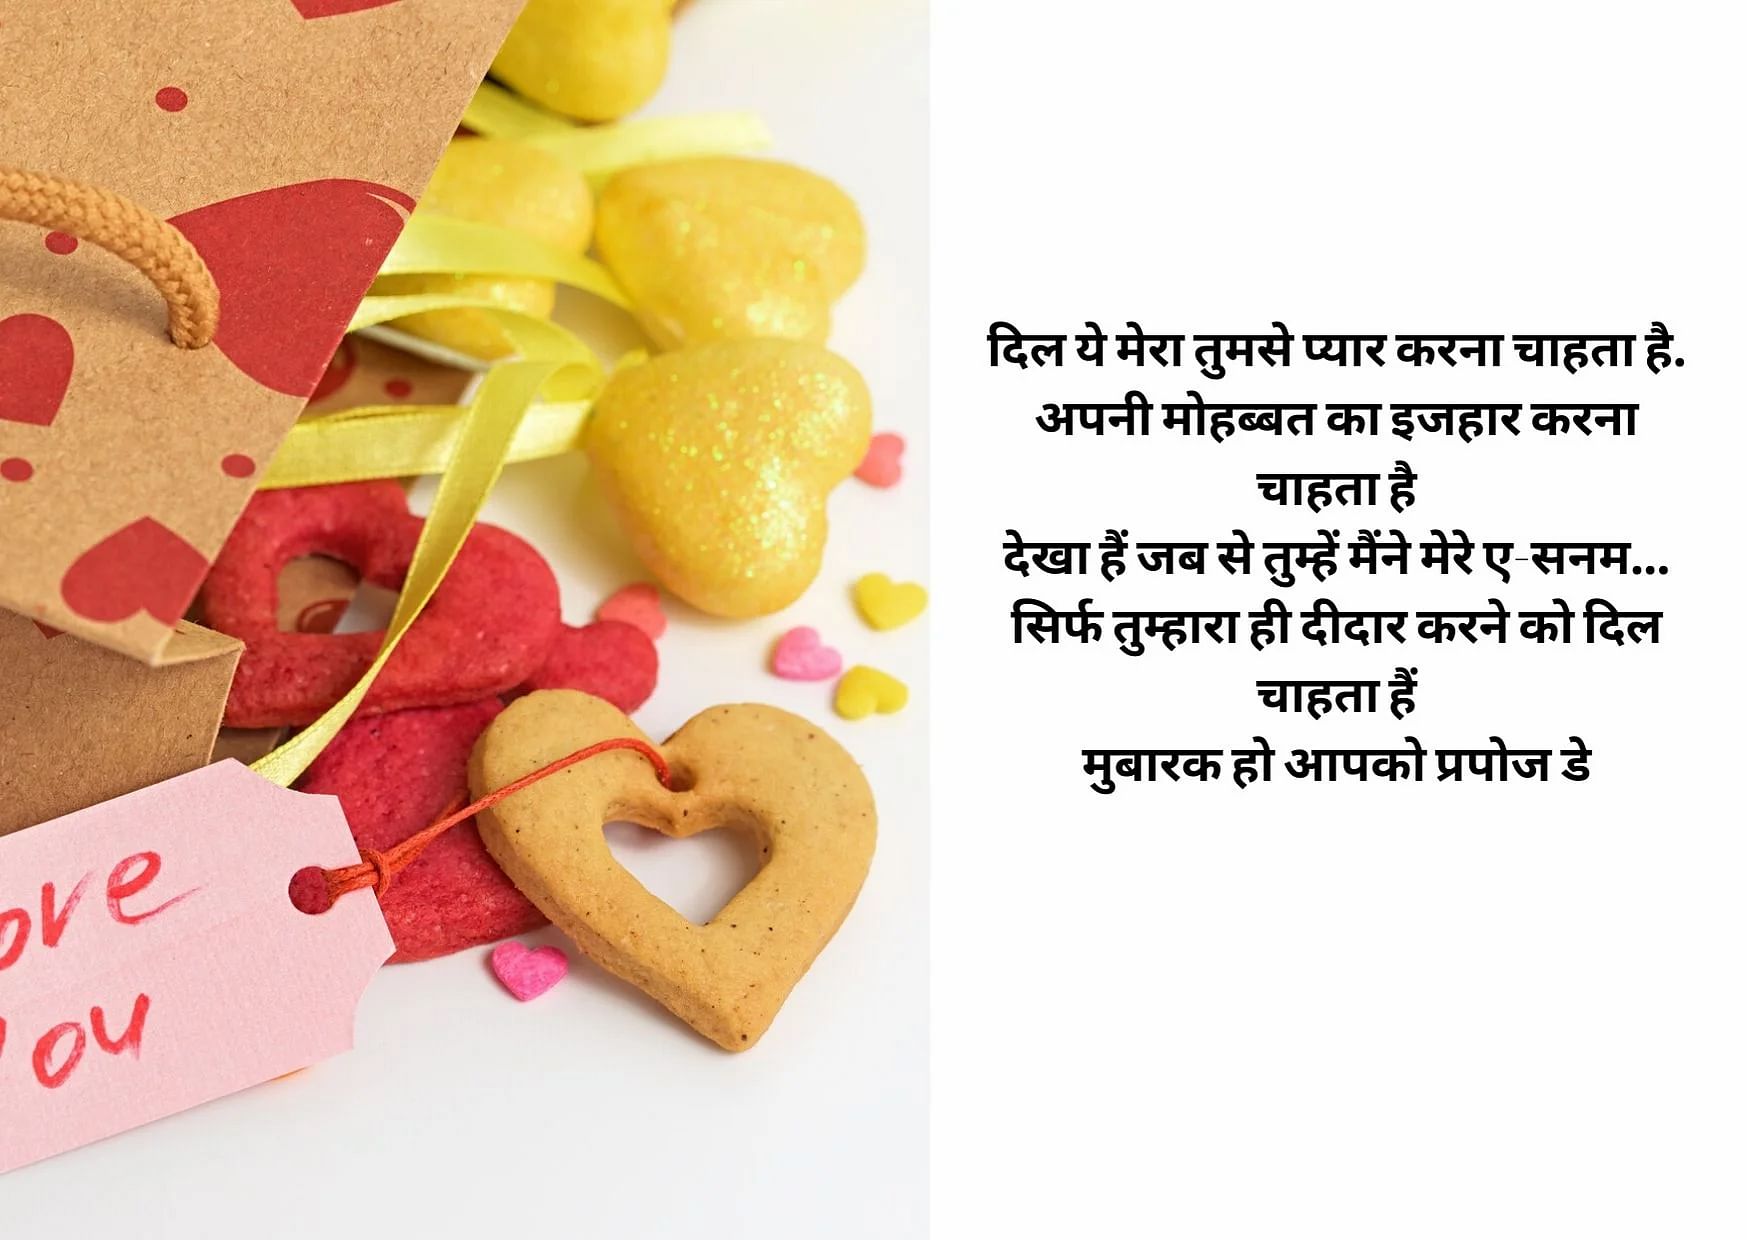 दिल ये मेरा तुमसे प्यार करना चाहता है.
अपनी मोहब्बत का इजहार करना
चाहता है
देखा हैं जब से तुम्हें मैंने मेरे ए-सनम...
सिर्फ तुम्हारा ही दीदार करने को दिल
चाहता हैं
मुबारक हो आपको प्रपोज डे